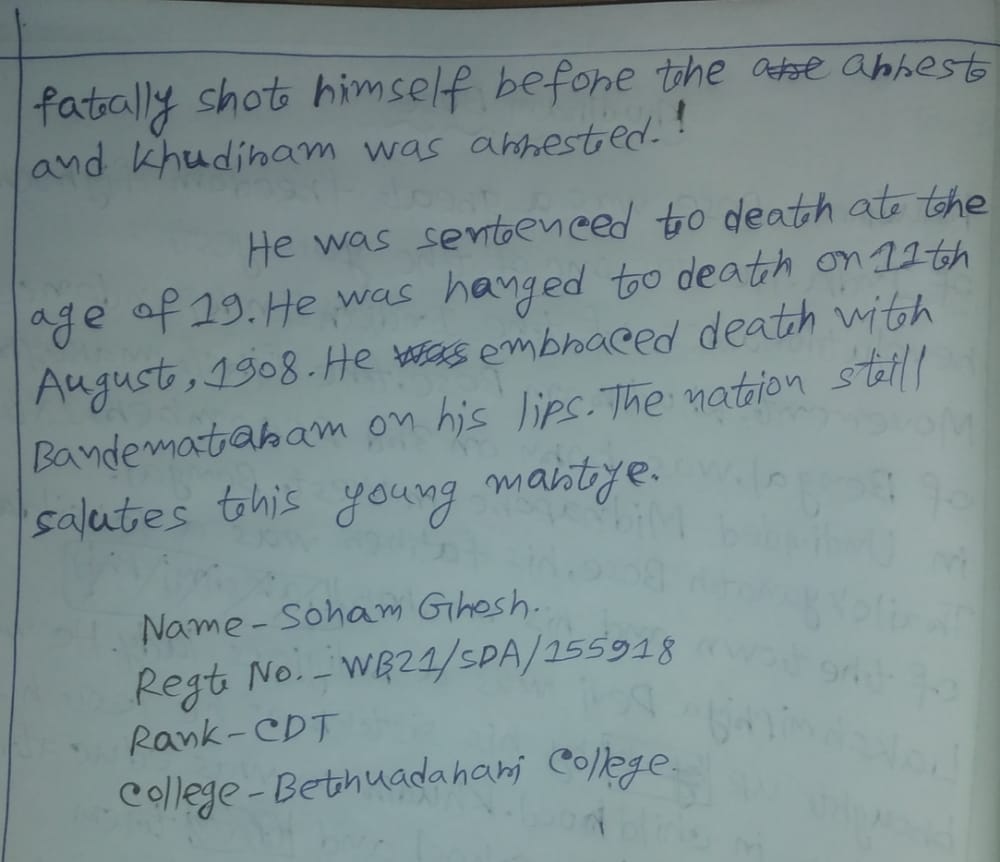 fatally shot himself before the are arrest
and Khudiram was arrested.!
He was sentenced to death at the
age of 19. He was hanged to death on 11th
August, 1908. He was embraced death with
Bandemataram on his lips. The nation still
salutes this young martye.
Name - Soham Ghosh.
Regt No. - WB21/SDA/155918
Rank - CDT
College - Bethuadahari College.